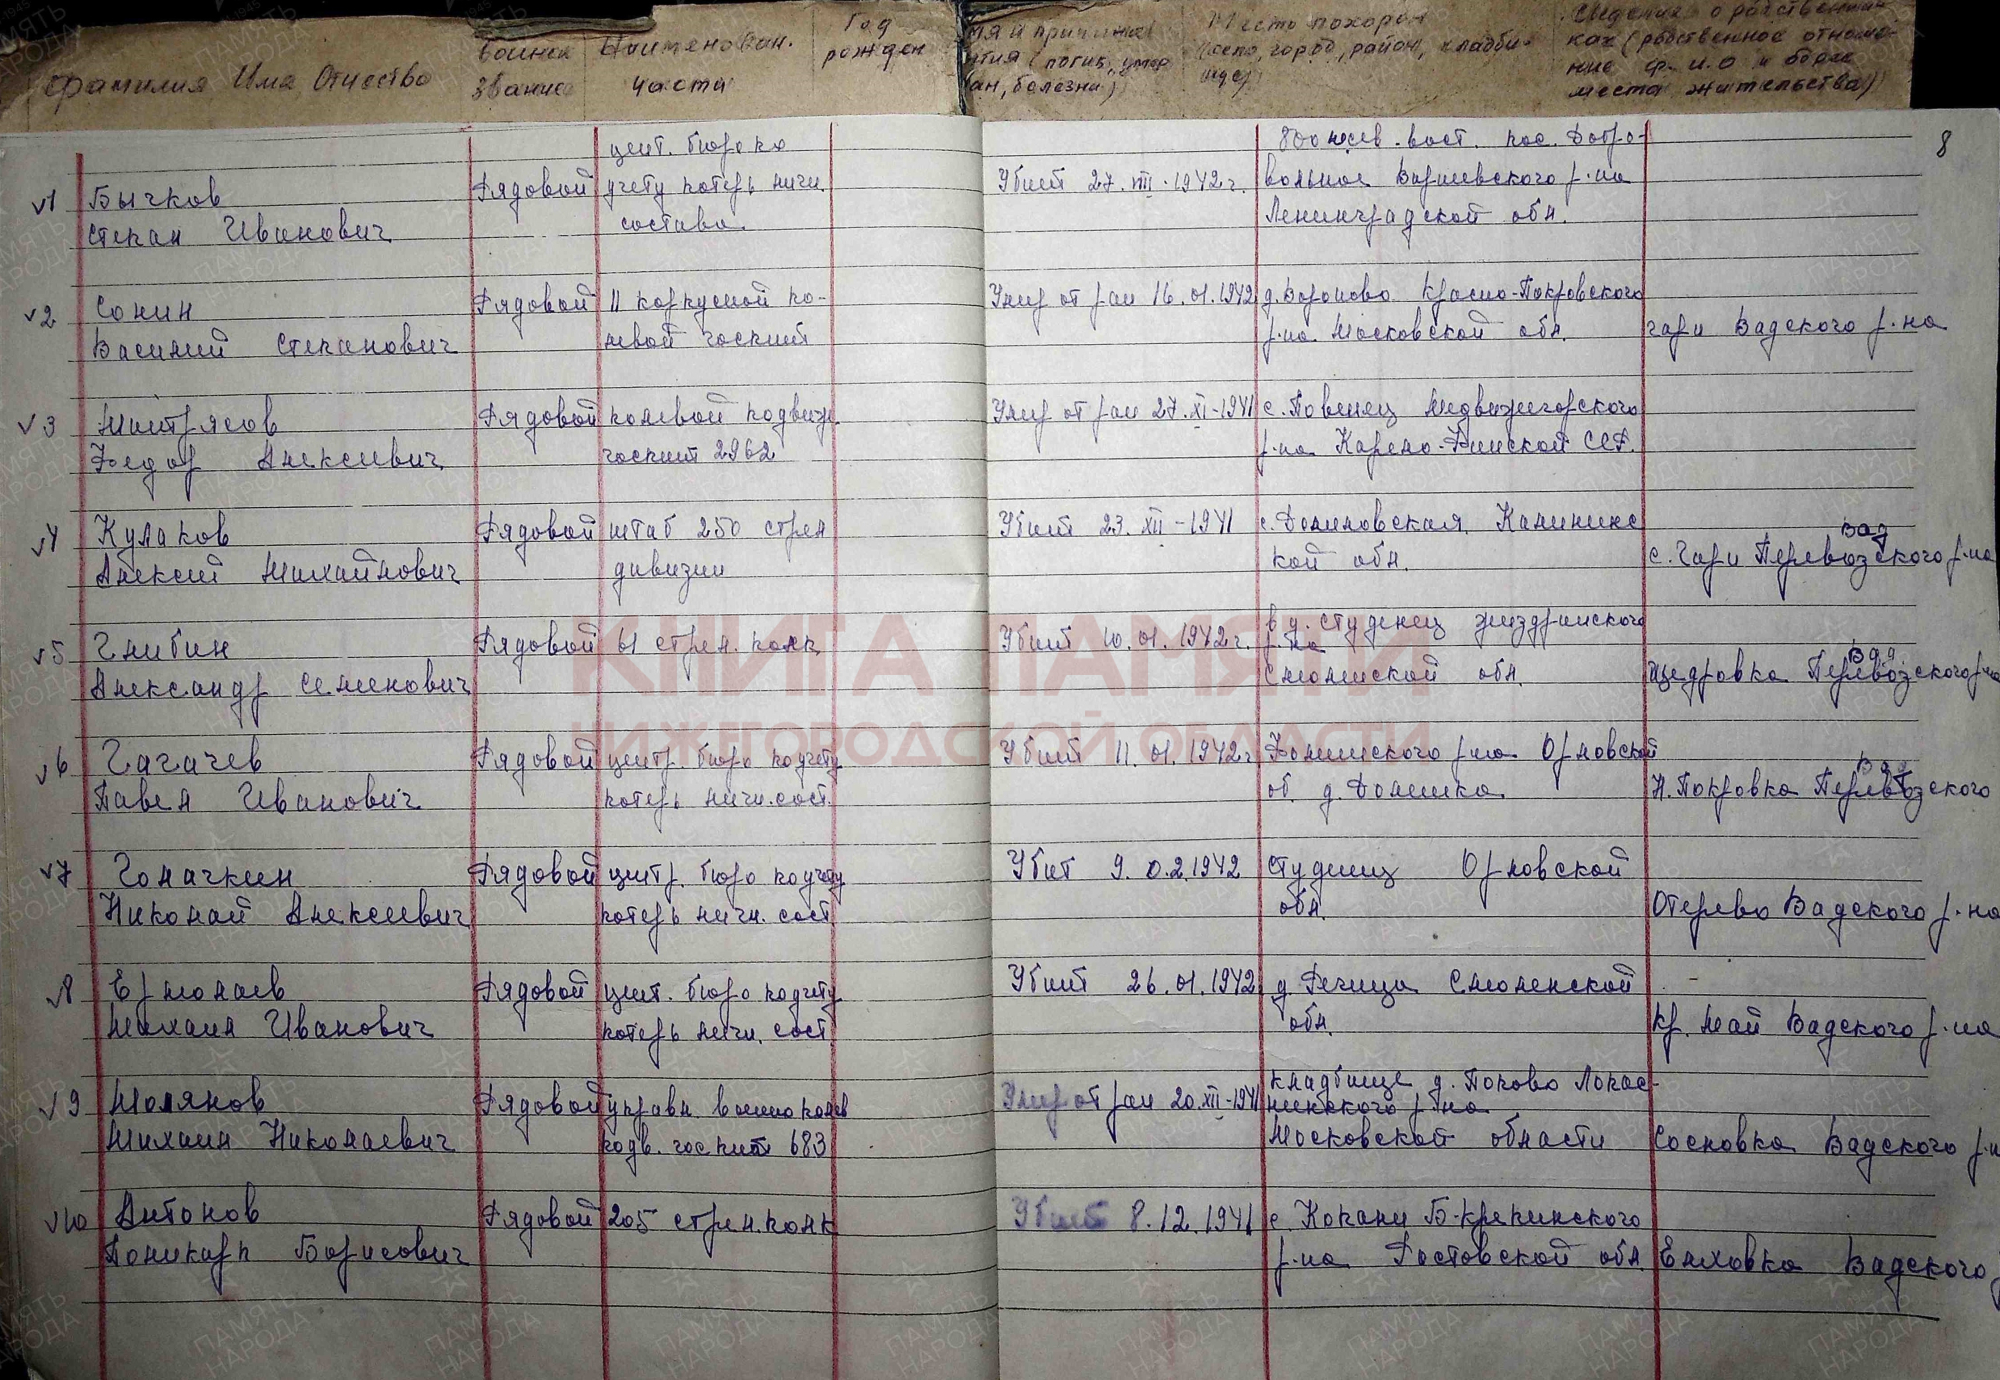 Фамилия Имя Отчество
воинск звание
Наименован. части
Год рожден
мя и причина
ытия (погиб, умер
ан, болезни)
Место похорон
(село, город, район, кладби-
ще)
Сведения о родственни-
ках (родственное отноше-
ние ф.и.о и более
места жительства)
8
v1 Бычков Степан Иванович
Рядовой
цент. бюро по
учету потерь личн.
состава
Убит 27.VIII.1942 г.
800 м сев. вост. пос. Добро-
вольное
Ленинградской обл.
v2 Сонин Василий Степанович
Рядовой
11 корпусной по-
левой госпит
Умер от ран 16.01.1942
д. Вороново Красно-Покровского
р-на Московской обл.
гари Вадского р-на
v3 Митрясов Федор Алексеевич
Рядовой
полевой подвиж
госпит 2962
Умер от ран 27.XI-1941
с. Повенец Медвижегорского
р-на Карело-Финской ССР.
v4 Кулаков Алексей Михайлович
Рядовой
штаб 250 стрел
дивизии
Убит 23.XII-1941
с. Калининс
кой обл.
Вад
с. Гари Перевозского р-на
v5 Глибин Александр Семенович
Рядовой
61 стрел. полк
Убит 10.01.1942 г.
в д. Студенец Жиздринского
р-на
Смоленской обл.
Вад
Щедровка Перевозского р-на
v6 Гагачев Павел Иванович
Рядовой
центр. бюро по учету
потерь личн. сост.
Убит 11.01.1942 г
Фоминского р-на Орловской
об. д. Долинка
Вад
Н. Покровка Перевозского
v7 Голачкин Николай Алексеевич
Рядовой
центр. бюро по учету
потерь личн. сост.
Убит 9.02.1942
Студениц Орловской
обл.
Отерево Вадского р-на
v8 Ермолаев Михаил Иванович
Рядовой
цент. бюро по учету
потерь личн. сост.
Убит 26.01.1942
д. Речица Смоленской
обл.
-
Кр. Май Вадского р-на
v9 Молянов Михаил Николаевич
Рядовой
управл. военно полев
подв. госпит 683
Умер от ран 20.XII-1941
кладбище д. Попово Лотос-
шинского р-на
Московской области
Сосновка Вадского р-н
v10 Антонов Поликарп Борисович
Рядовой
205 стрел. полк
Убит 8.12.1941
с. Копани Б-крепинского
р-на Ростовской обл.
Елховка Вадского р
КНИГА ПАМЯТИ
НИЖЕГОРОДСКОЙ ОБЛАСТИ
ПАМЯТЬ
НАРОДА